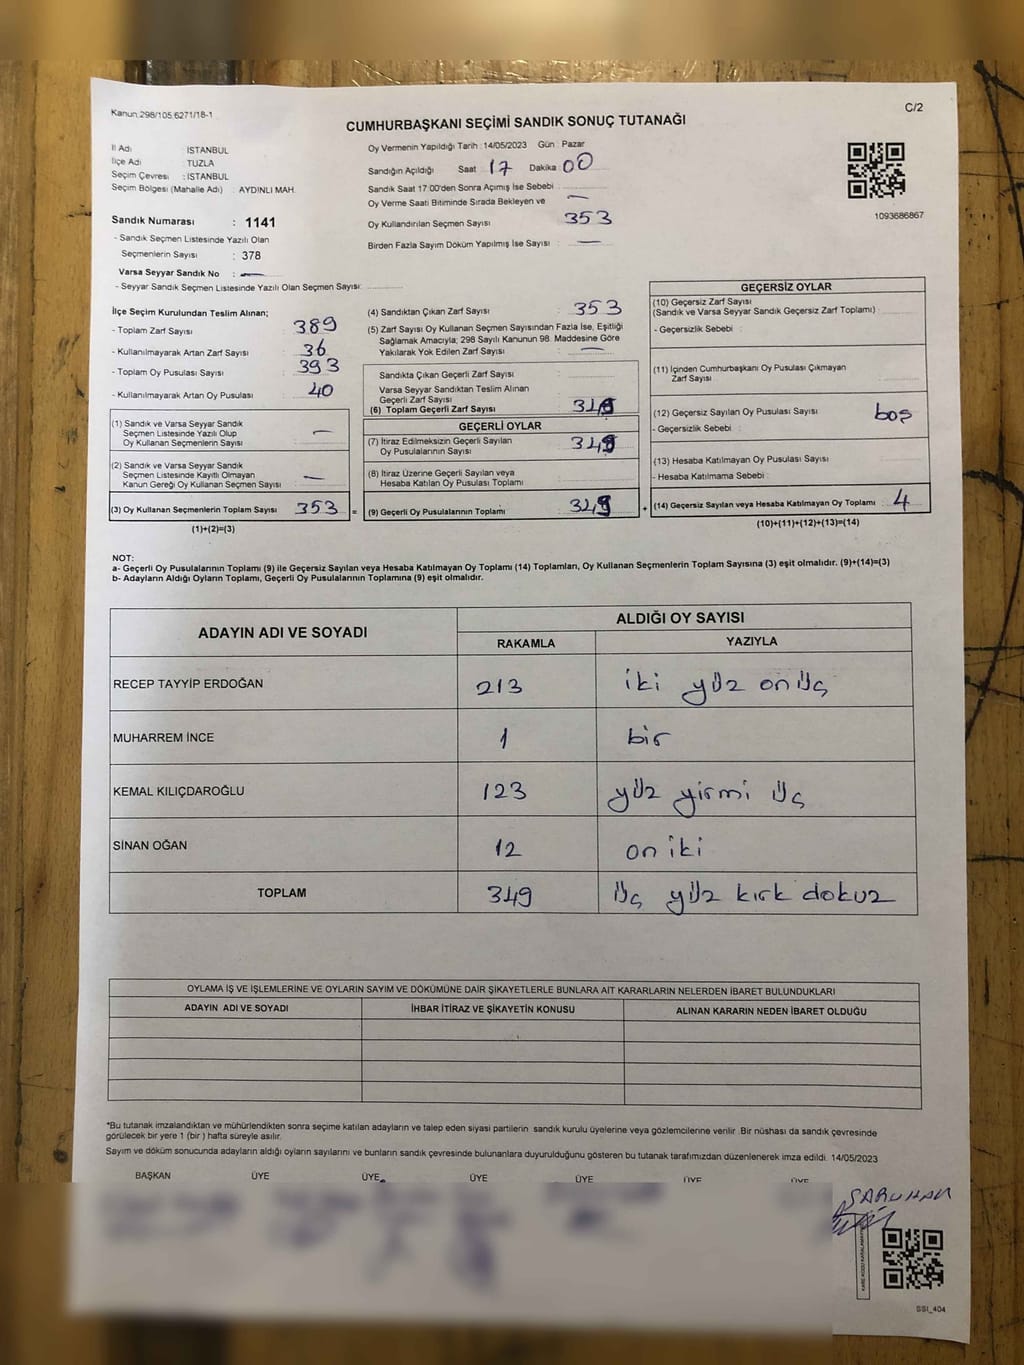 Kanun:298/105,6271/18-1
C/2
CUMHURBAŞKANI SEÇİMİ SANDIK SONUÇ TUTANAĞI
İl Adı : İSTANBUL
İlçe Adı : TUZLA
Seçim Çevresi : İSTANBUL
Seçim Bölgesi (Mahalle Adı) : AYDINLI MAH.
Sandık Numarası : 1141
- Sandık Seçmen Listesinde Yazılı Olan
Seçmenlerin Sayısı : 378
Varsa Seyyar Sandık No : —
- Seyyar Sandık Seçmen Listesinde Yazılı Olan Seçmen Sayısı:
Oy Vermenin Yapıldığı Tarih :14/05/2023 Gün : Pazar
Sandığın Açıldığı Saat 17 Dakika 00
Sandık Saat 17:00'den Sonra Açımış İse Sebebi
Oy Verme Saati Bitiminde Sırada Bekleyen ve —
Oy Kullandırılan Seçmen Sayısı 353
Birden Fazla Sayım Döküm Yapılmış İse Sayısı : —
1093686867
İlçe Seçim Kurulundan Teslim Alınan;
- Toplam Zarf Sayısı : 389
- Kullanılmayarak Artan Zarf Sayısı : 36
- Toplam Oy Pusulası Sayısı : 393
- Kullanılmayarak Artan Oy Pusulası : 40
(1) Sandık ve Varsa Seyyar Sandık
Seçmen Listesinde Yazılı Olup
Oy Kullanan Seçmenlerin Sayısı : —
(2) Sandık ve Varsa Seyyar Sandık
Seçmen Listesinde Kayıtlı Olmayan
Kanun Gereği Oy Kullanan Seçmen Sayısı : —
(3) Oy Kullanan Seçmenlerin Toplam Sayısı : 353
(1)+(2)=(3)
(4) Sandıktan Çıkan Zarf Sayısı : 353
(5) Zarf Sayısı Oy Kullanan Seçmen Sayısından Fazla İse, Eşitliği
Sağlamak Amacıyla; 298 Sayılı Kanunun 98. Maddesine Göre
Yakılarak Yok Edilen Zarf Sayısı : —
Sandıkta Çıkan Geçerli Zarf Sayısı :
Varsa Seyyar Sandıktan Teslim Alınan
Geçerli Zarf Sayısı :
(6) Toplam Geçerli Zarf Sayısı : 349
GEÇERLİ OYLAR
(7) İtiraz Edilmeksizin Geçerli Sayılan
Oy Pusulalarının Sayısı : 349
(8) İtiraz Üzerine Geçerli Sayılan veya
Hesaba Katılan Oy Pusulası Toplamı :
= (9) Geçerli Oy Pusulalarının Toplamı : 349 +
GEÇERSİZ OYLAR
(10) Geçersiz Zarf Sayısı
(Sandık ve Varsa Seyyar Sandık Geçersiz Zarf Toplamı) :
- Geçersizlik Sebebi :
(11) İçinden Cumhurbaşkanı Oy Pusulası Çıkmayan
Zarf Sayısı :
(12) Geçersiz Sayılan Oy Pusulası Sayısı : boş
- Geçersizlik Sebebi :
(13) Hesaba Katılmayan Oy Pusulası Sayısı :
- Hesaba Katılmama Sebebi :
(14) Geçersiz Sayılan veya Hesaba Katılmayan Oy Toplamı : 4
(10)+(11)+(12)+(13)=(14)
NOT:
a- Geçerli Oy Pusulalarının Toplamı (9) ile Geçersiz Sayılan veya Hesaba Katılmayan Oy Toplamı (14) Toplamları, Oy Kullanan Seçmenlerin Toplam Sayısına (3) eşit olmalıdır. (9)+(14)=(3)
b- Adayların Aldığı Oyların Toplamı, Geçerli Oy Pusulalarının Toplamına (9) eşit olmalıdır.
ADAYIN ADI VE SOYADI
ALDIĞI OY SAYISI
RAKAMLA YAZIYLA
RECEP TAYYİP ERDOĞAN 213 iki yüz onüç
MUHARREM İNCE 1 bir
KEMAL KILIÇDAROĞLU 123 yüz yirmi üç
SİNAN OĞAN 12 on iki
TOPLAM 349 üç yüz kırk dokuz
OYLAMA İŞ VE İŞLEMLERİNE VE OYLARIN SAYIM VE DÖKÜMÜNE DAİR ŞİKAYETLERLE BUNLARA AİT KARARLARIN NELERDEN İBARET BULUNDUKLARI
ADAYIN ADI VE SOYADI İHBAR İTİRAZ VE ŞİKAYETİN KONUSU ALINAN KARARIN NEDEN İBARET OLDUĞU
*Bu tutanak imzalandıktan ve mühürlendikten sonra seçime katılan adayların ve talep eden siyasi partilerin sandık kurulu üyelerine veya gözlemcilerine verilir. Bir nüshası da sandık çevresinde
görülecek bir yere 1 (bir ) hafta süreyle asılır.
Sayım ve döküm sonucunda adayların aldığı oyların sayılarını ve bunların sandık çevresinde bulunanlara duyurulduğunu gösteren bu tutanak tarafımızdan düzenlenerek imza edildi. 14/05/2023
BAŞKAN ÜYE ÜYE ÜYE ÜYE ÜYE ÜYE
SARUHAN
SSI_404